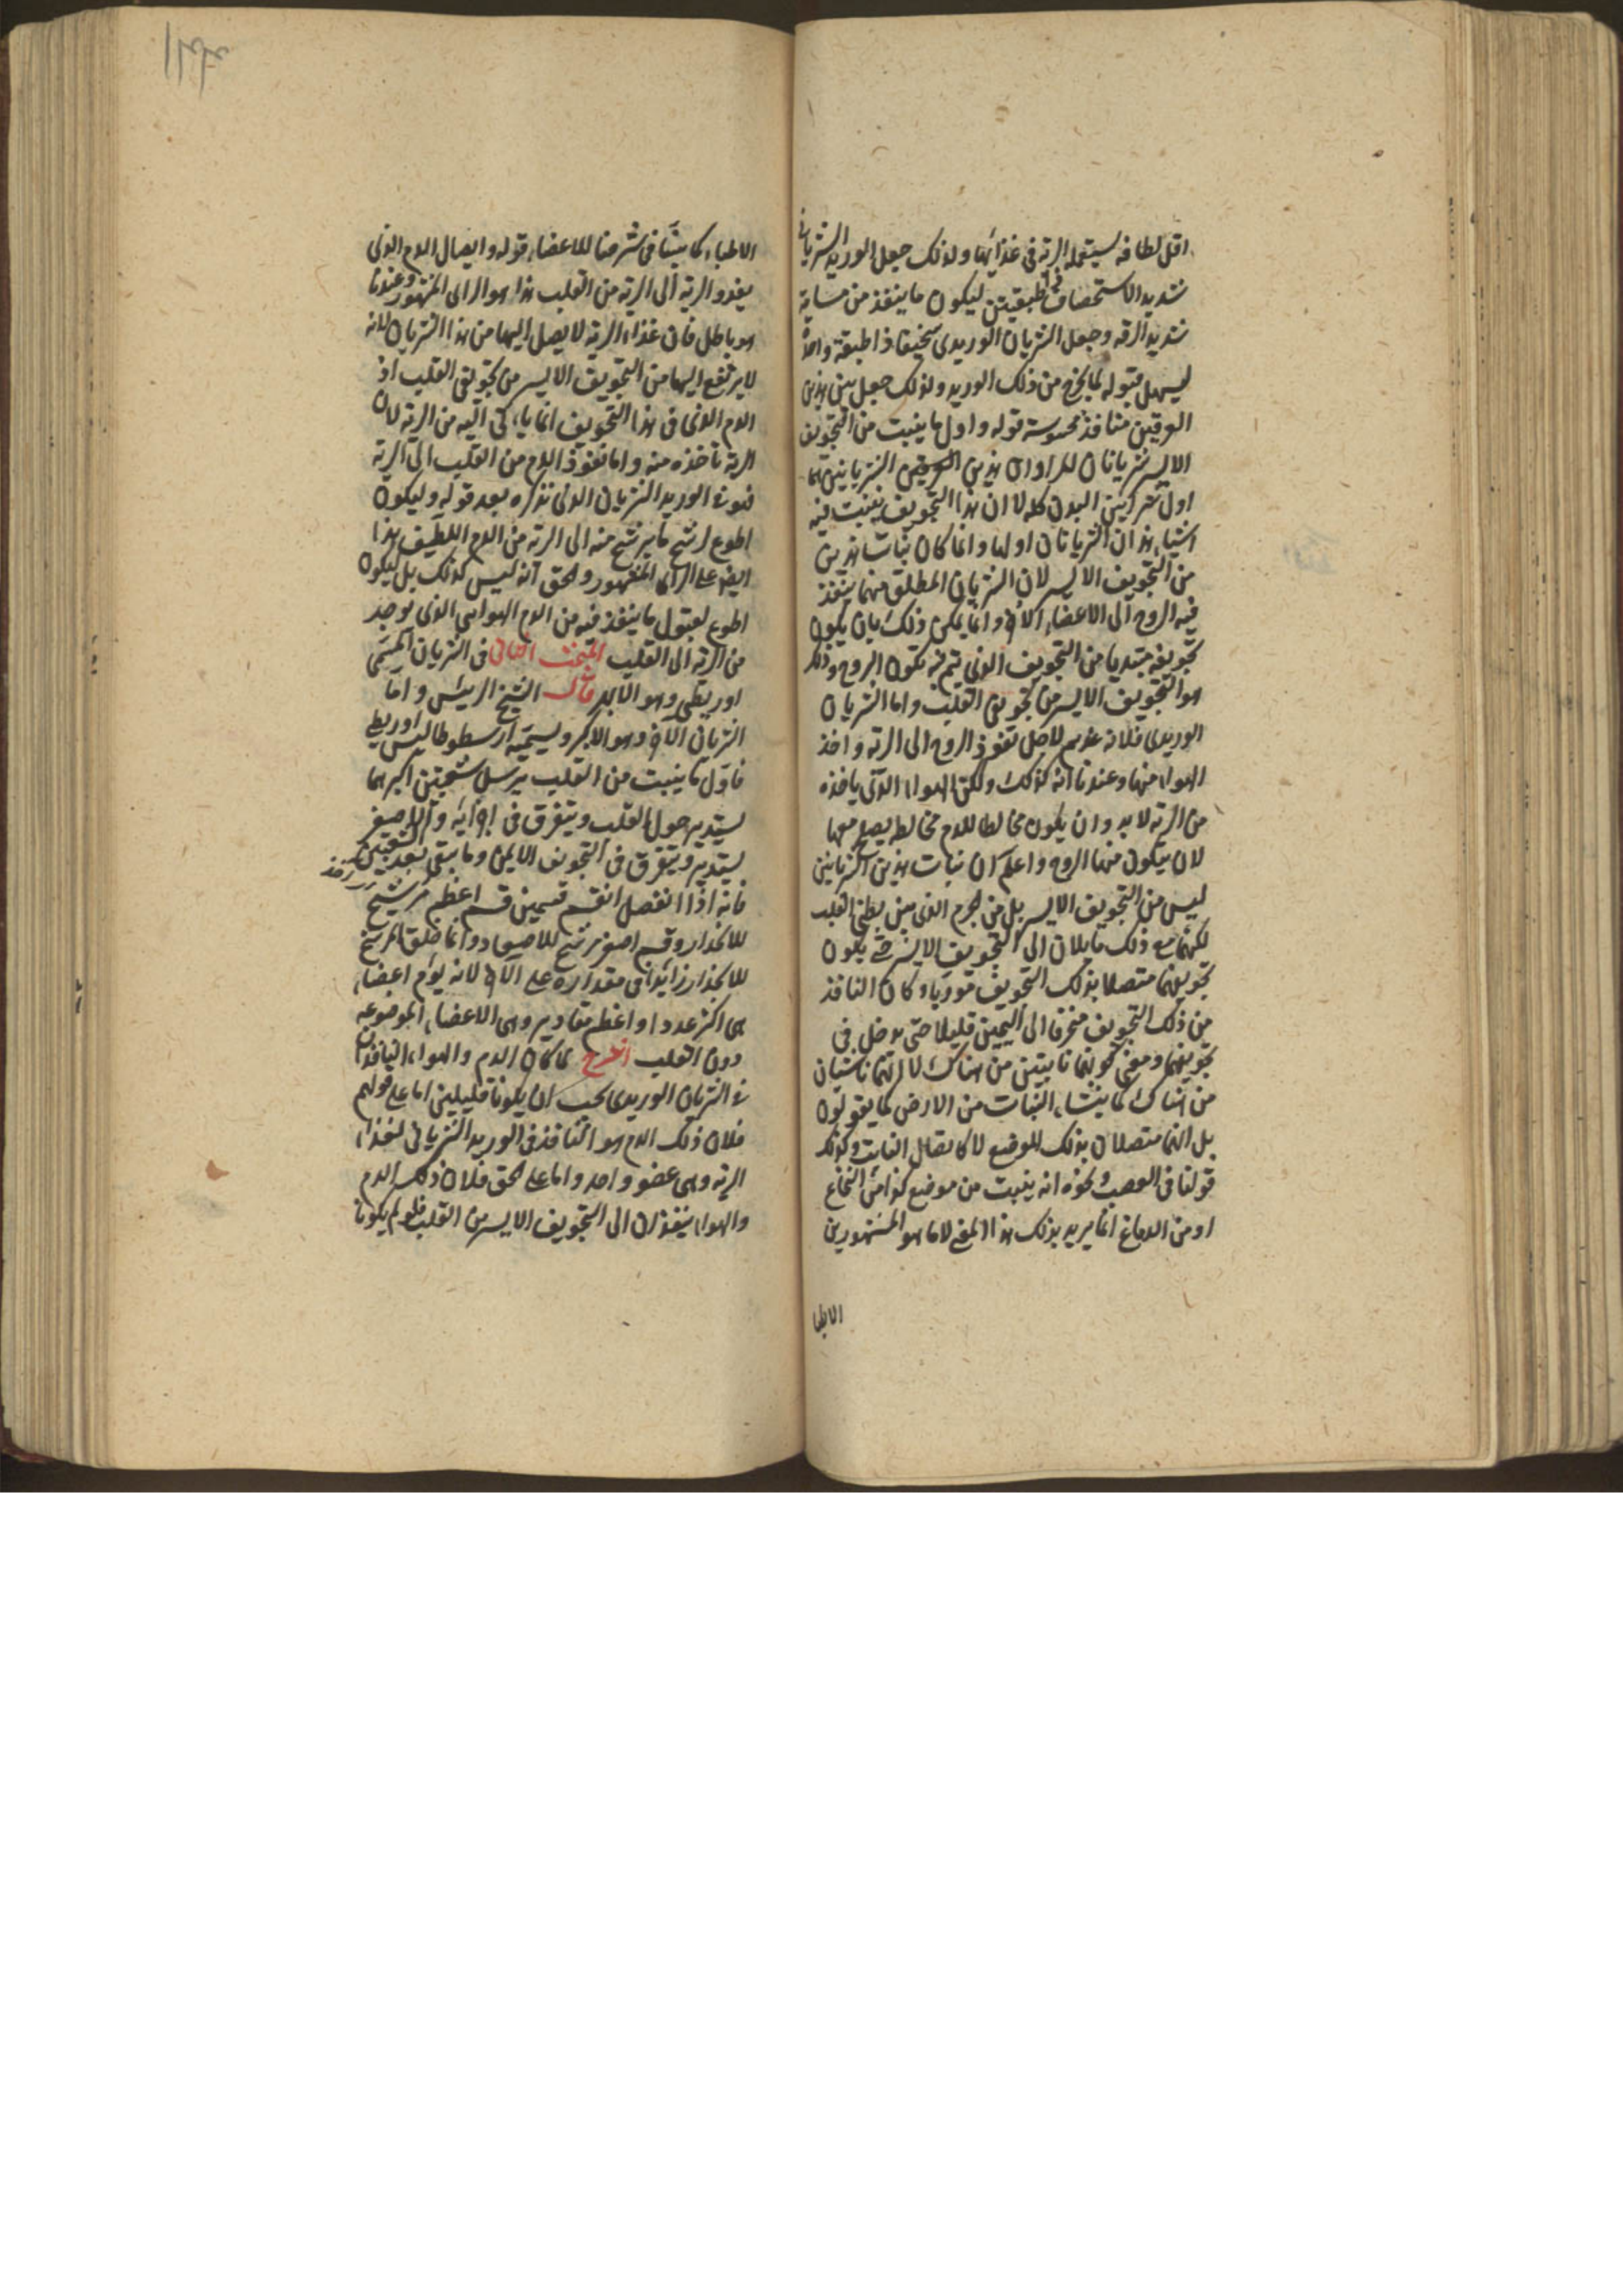 اقل لطافه يستعمله الريه فى غذايها ولذلك جعل الوريد الشريانى
شديد الاستحصاف ذا طبقتين ليكون ما ينفذ من مسامه
شديد الرقه وجعل الشريان الوريدى سخيفا ذا طبقة واحدة
ليسهل قبوله لما يخرج من ذلك الوريد ولذلك جعل بين هذين
العرقين منافذ محسوسة قوله واول ما ينبت من التجويف
الايسر شريانان المراد ان هذين العرقين الشريانين هما
اول شرايين البدن كله لا ان هذا التجويف ينبت فيه
اشياء هذان الشريانان اولها وانما كان نبات هذين
من التجويف الايسر لان الشريان المطلق منهما ينفذ
فيه الروح الى الاعضاء الاخر وانما يمكن ذلك بان يكون
تجويفه مبتديا من التجويف الذى يتم فيه تكون الروح وذلك
هو التجويف الايسر من تجويفى القلب واما الشريان
الوريدى فلانه عندهم لاجل نفوذ الروح الى الريه واخذ
الهواء منها وعندنا انه كذلك ولكن الهواء الذى ياخذه
من الريه لابد وان يكون مخالطا للدم مخالطه يصلح معها
لان يتكون منهما الروح واعلم ان نبات هذين الشريانين
ليس من التجويف الايسر بل من الجرم الذى بين بطنى القلب
لكنهما مع ذلك مايلان الى التجويف الايسر حتى يكون
تجويفهما متصلا بذلك التجويف موربا وكان النافذ
من ذلك التجويف منحرفا الى اليمين قليلا حتى يدخل فى
تجويفهما ومعنى كونهما نابتين من هناك لا انهما ناشيان
من هناك كما ينشاء النبات من الارض كما يقولون
بل انهما متصلان بذلك الموضع لا كاتصال النابت وكذلك
قولنا فى العصب ونحوه انه ينبت من موضع كذا من النخاع
او من الدماغ انما يريد بذلك هذا المعنى لا ما هو المشهور بين
الاطبا
الاطباء كما بيناه فى شرحنا للاعضاء قوله وايصال الدم الذى
يغذو الريه الى الريه من القلب هذا هو الراى المشهور وعندنا
هو باطل فان غذاء الريه لا يصل اليها من هذا الشريان لانه
لا يرتفع اليها من التجويف الايسر من تجويفى القلب اذ
الدم الذى فى هذا التجويف انما ياتى اليه من الريه لا ان
الريه تاخذه منه واما نفوذ الدم من القلب الى الريه
فهو فى الوريد الشريانى الذى نذكره بعد قوله وليكون
اطوع لرشح ما يرشح منه الى الريه من الدم اللطيف هذا
ايضا على الراى المشهور والحق انه ليس كذلك بل ليكون
اطوع لقبول ما ينفذ فيه من الدم الهوايى الذى يوجد
من الريه الى القلب المبحث الثانى فى الشريان المسمى
اوريطى وهو الابهر قال الشيخ الرييس واما
الشريان الاخر وهو الاكبر ويسميه ارسطوطاليس اوريطى
فاول ما ينبت من القلب يرسل شعبتين اكبرهما
يستدير حول القلب ويتفرق فى اجزايه والاصغر
يستدير ويتفرق فى التجويف الايمن وما يبقى بعد الشعبتين
فانه اذا انفصل انقسم قسمين قسم اعظم مرشح
للانحدار وقسم اصغر مرشح للاصعاد وانما خلق المرشح
للانحدار زايدا فى مقداره على الاخر لانه يؤم اعضاء
هى اكثر عددا واعظم مقادير وهى الاعضاء الموضوعه
دون القلب الشرح لما كان الدم والهواء النافذان
فى الشريان الوريدى يجب ان يكونا قليلين اما على قولهم
فلان ذلك الدم هو النافذ فى الوريد الشريانى لغذاء
الريه وهى عضو واحد واما على الحق فلان ذلك الدم
والهواء ينفذان الى التجويف الايسر من القلب فلو لم يكونا